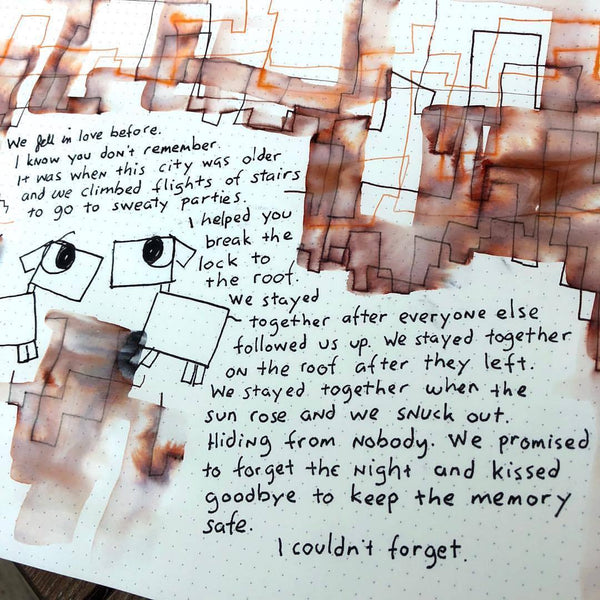 We fell in love before.
I know you don't remember.
It was when this city was older
and we climbed flights of stairs
to go to sweaty parties.
I helped you
break the
lock to
the roof.
We stayed
together after everyone else
followed us up. We stayed together
on the roof after they left.
We stayed together when the
sun rose and we snuck out.
Hiding from nobody. We promised
to forget the night and kissed
goodbye to keep the memory
safe.
I couldn't forget.